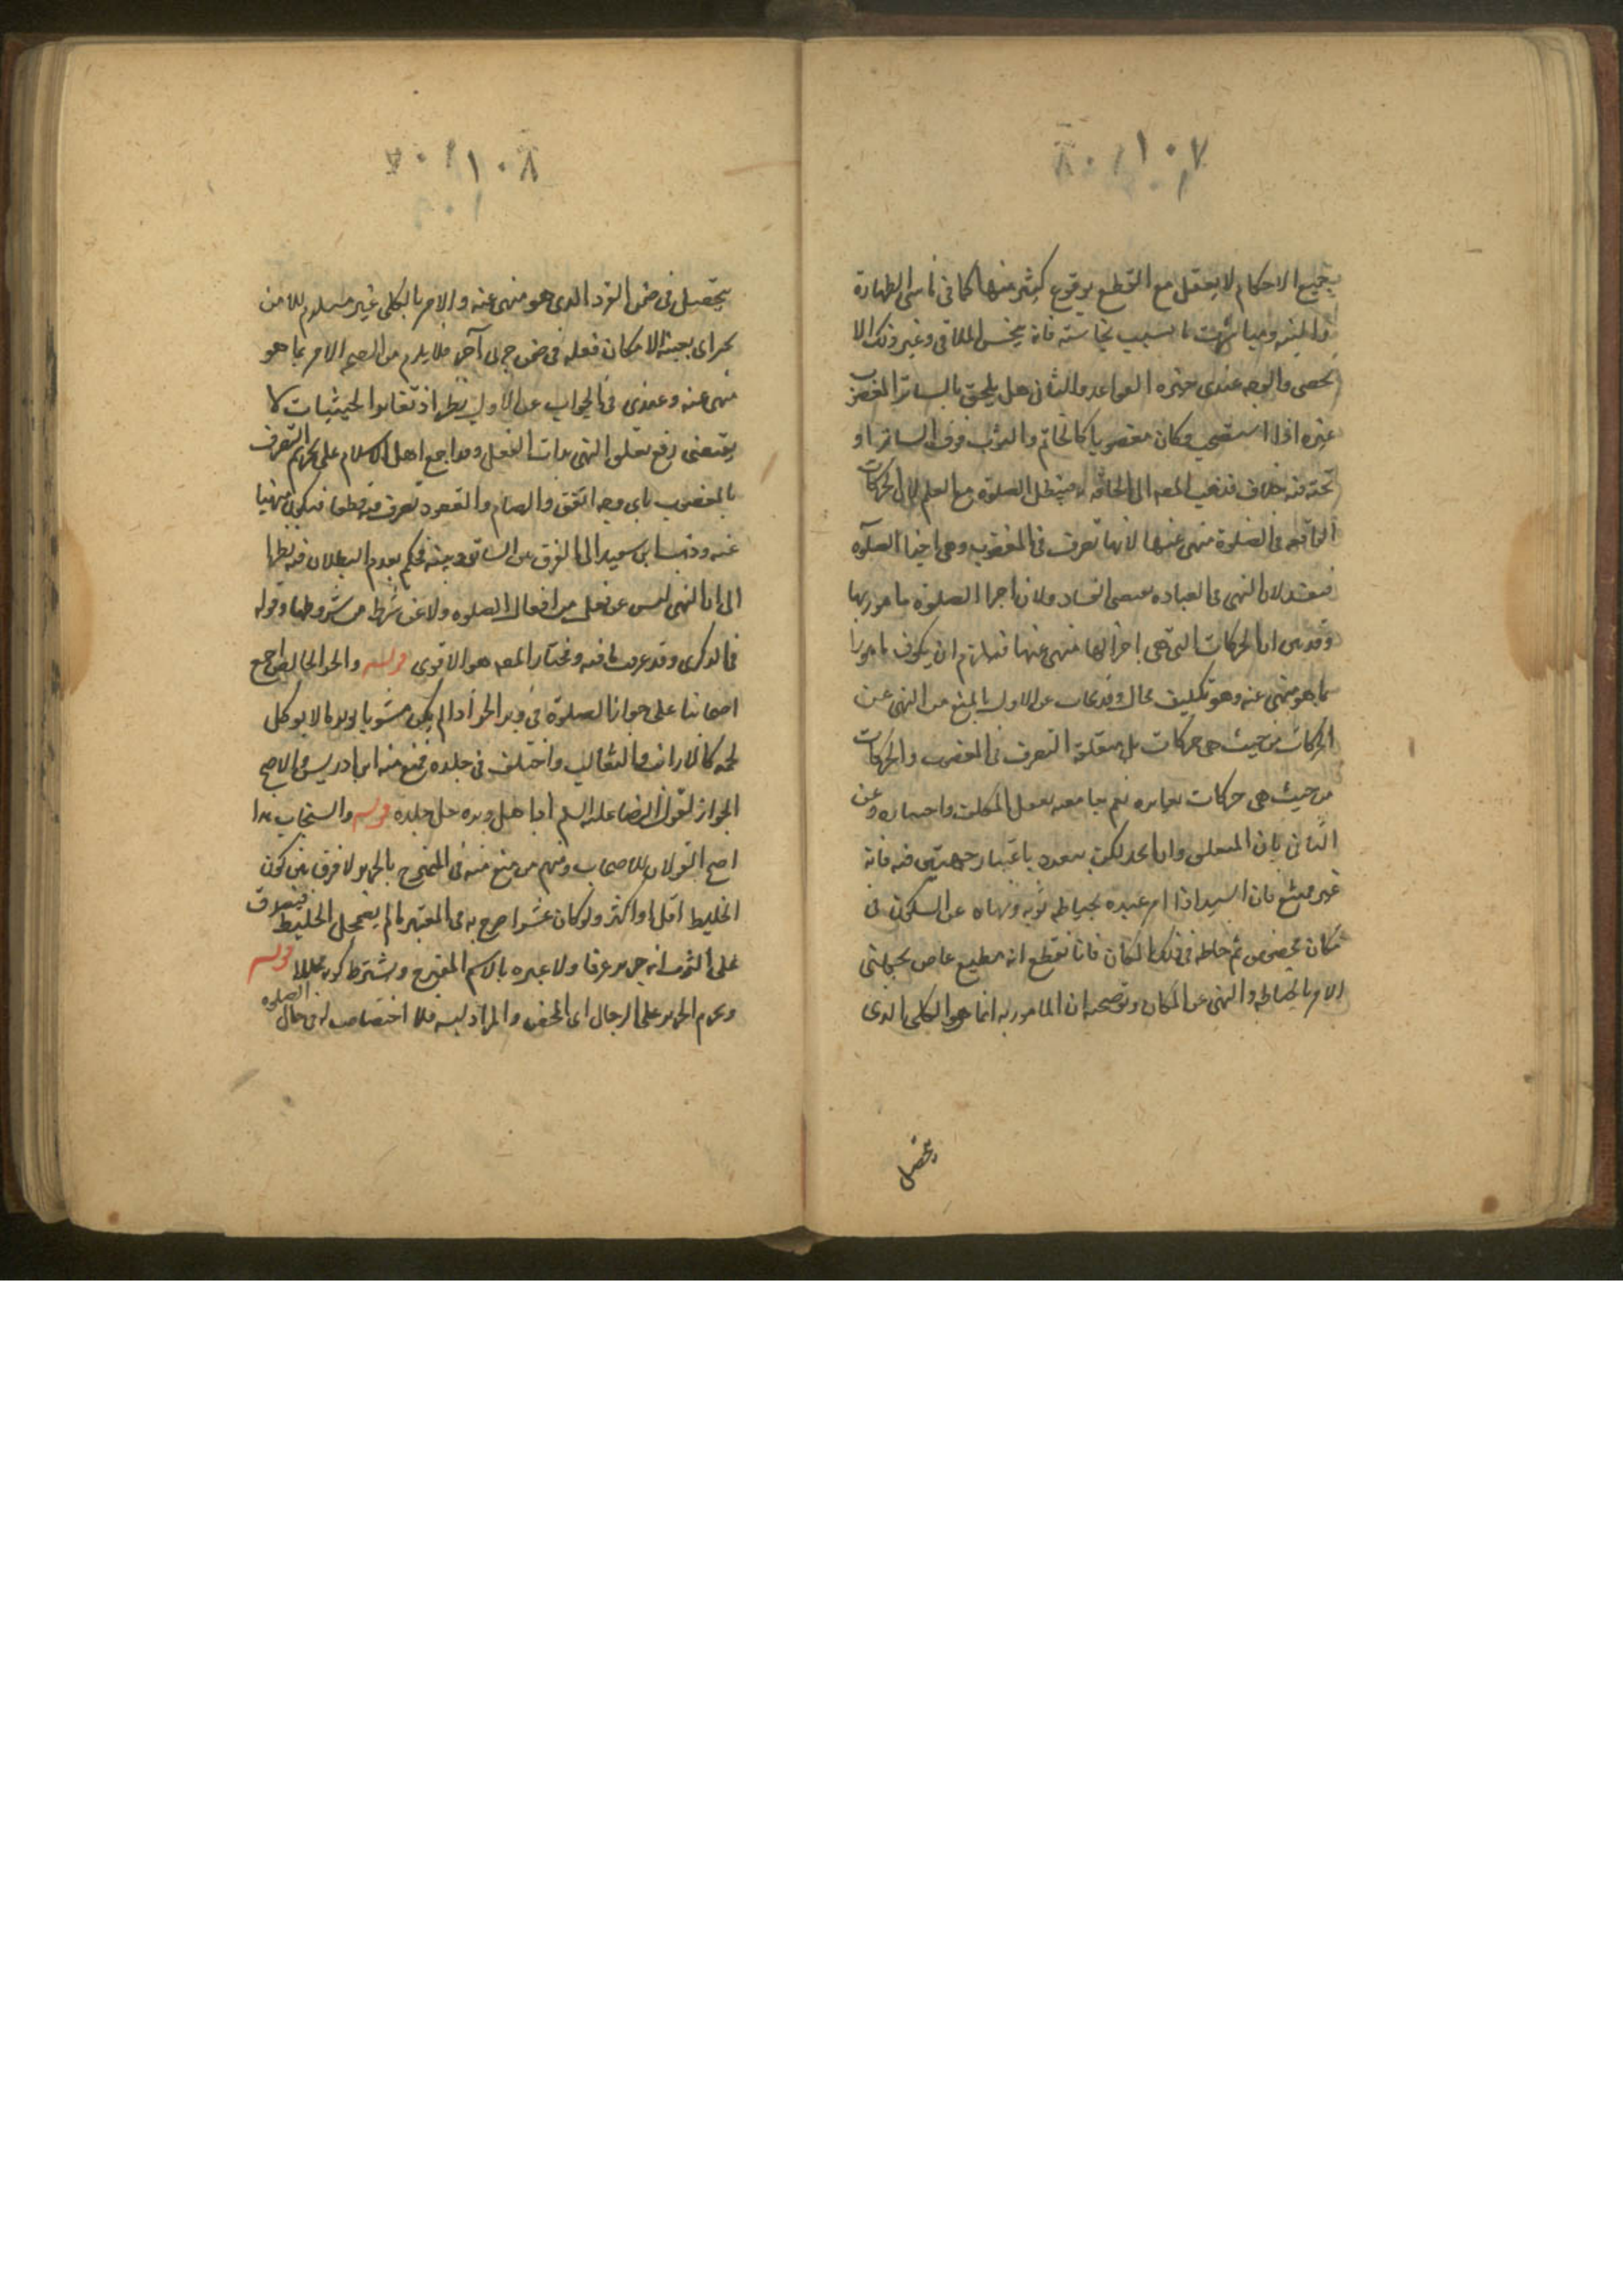 ١٠٧
بجميع الاحكام لا يعقل مع القطع بوقوع كثير منها كما فى ناسى الطهارة
نجاسته فانه ينجس الملاقى وغير ذلك مما لا
يحصى والوجه عندى خيره القواعد والثانى هل يلحق بالساتر المغصوب
غيره اذا استصحب وكان مغصوبا كالخاتم والثوب فوق الساتر او
تحته فيه خلاف فذهب المصه الى الحاقه به فيبطل الصلوة مع العلم لان الحركات
الواقعه فى الصلوة منهى عنها لانها تصرف فى المغصوب وهى اجزا الصلوة
فيفسد لان النهى فى العباده يقتضى الفساد ولان اجزا الصلوة مامور بها
وقد بين ان الحركات التى هى اجزاؤها منهى عنها فيلزم ان يكون مامورا
بما هو منهى عنه وهو تكليف محال وقد يجاب عن الاول بالمنع من النهى عن
الحركات من حيث هى حركات بل متعلقه التصرف فى المغصوب والحركات
من حيث هى حركات مغايره نعم يجامعه بفعل المكلف واختياره وعن
الثانى بان المتعلق وان اتحد لكنه متعدد باعتبار جهتين فيه فانه
غير ممتنع فان السيد اذا امر عبده بخياطه ثوبه ونهاه عن السكون فى
مكان مخصوص ثم خاطه فى ذلك المكان فانا نقطع انه مطيع عاص بجهتى
الامر بالخياطه والنهى عن المكان وتوضيحه ان المامور به انما هو الكلى الذى
يتحصل
١٠٨
يتحصل فى ضمن الفرد الذى هو منهى عنه والامر بالكلى غير مستلزم للامر
بجزاى بعينه لامكان فعله فى ضمن جزاى آخر فلا يلزم من الامر بما هو
منهى عنه وعندى فى الجواب عن الاول نظر اذ تغاير الحيثيات لا
يقتضى رفع تعلق النهى بذات الفعل وقد اجمع اهل الاسلام على تحريم التصرف
بالمغصوب باى وجه اتفق والقيام والقعود تصرف فيه قطعا فيكون منهيا
عنه وذهب ابن سعيد الى الفرق بين الساتر وغيره فحكم بعدم البطلان فيه نظرا
الى ان النهى ليس عن فعل من افعال الصلوه ولا عن شرط من شروطها وقواه
فى الذكرى وقد عرفت ما فيه ومختار المصه هو الاقوى قوله والخز الخالص اجمع
اصحابنا على جواز الصلوة فى وبر الخز اذا لم يكن مشوبا بوبر ما لا يوكل
لحمه كالارانب والثعالب واختلف فى جلده فمنع منه ابن ادريس والاصح
الجواز لقول الرضا عليه السلم اذا حل وبره حل جلده قوله والسنجاب هذا
اصح القولان للاصحاب ومنهم من منع منه فى الممتزج بالحرير لا فرق بين كون
الخليط اقل او اكثر ولو كان عشرا صرح به فى المعتبر ما لم يضمحل الخليط فيصدق
على الثوب انه حرير عرفا ولا عبره بالاسم المقترح ويشترط كونه محللا قوله
ويحرم الحرير على الرجال اى المحض والمراد لبسه فلا اختصاص له فى حال الصلوه